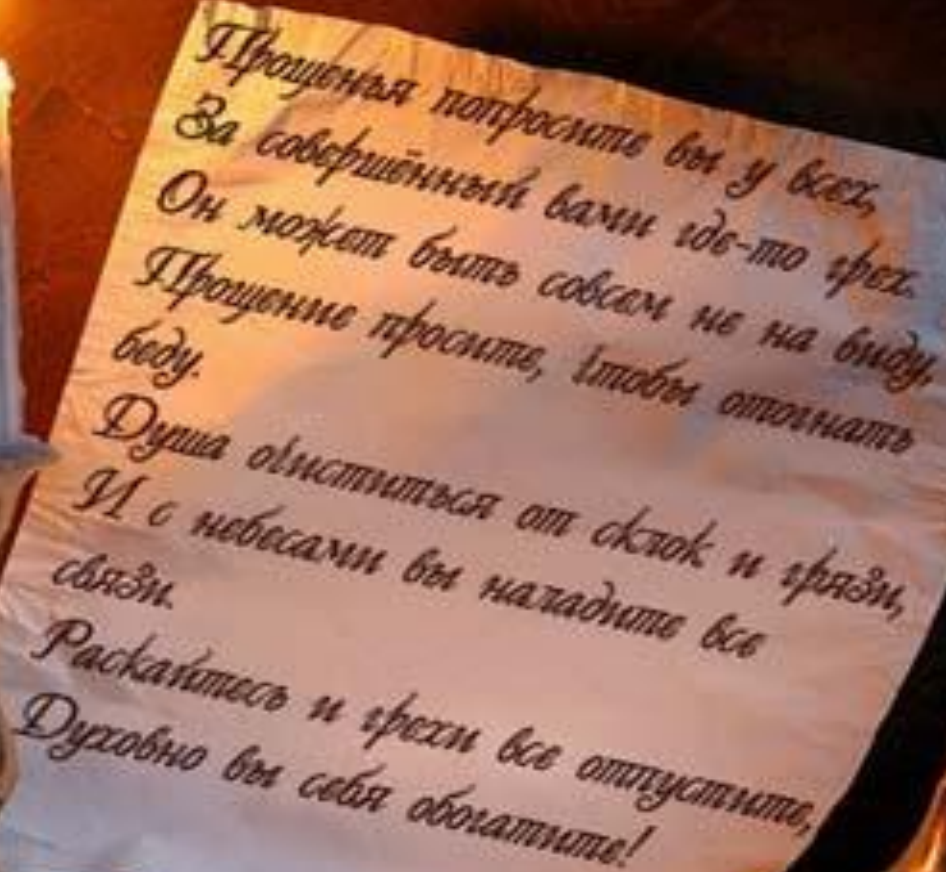 Прощенья попросите вы у всех,
За совершённый вами где-то грех.
Он может быть совсем не на виду,
Прощение просите, чтобы отогнать
беду.
Душа очиститься от склок и грязи,
И с небесами вы наладите все
связи.
Раскайтесь и грехи все отпустите,
Духовно вы себя обогатите!